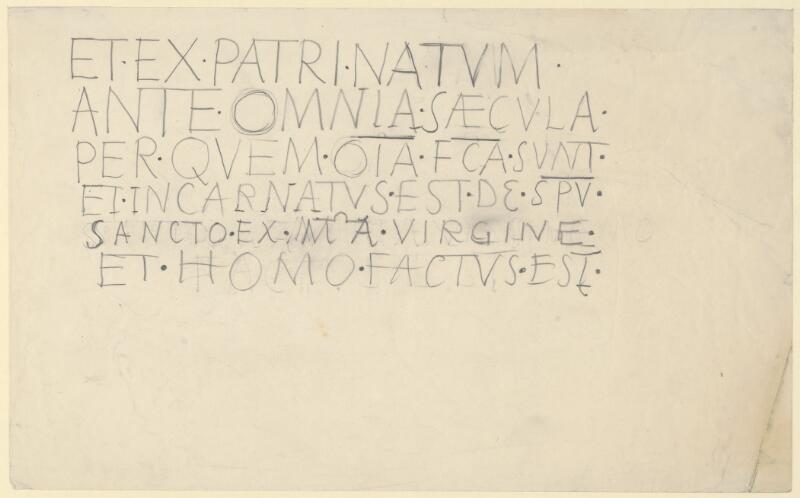 ET·EX·PATRI·NATVM·
ANTE·OMNIA·SÆCVLA·
PER·QVEM·OĪA·F̄C̄A·SVNT·
ET·INCARNATVS·EST·DE·SPV·
SANCTO·EX·M̄A·VIRGINE·
ET·HOMO·FACTVS·EST·